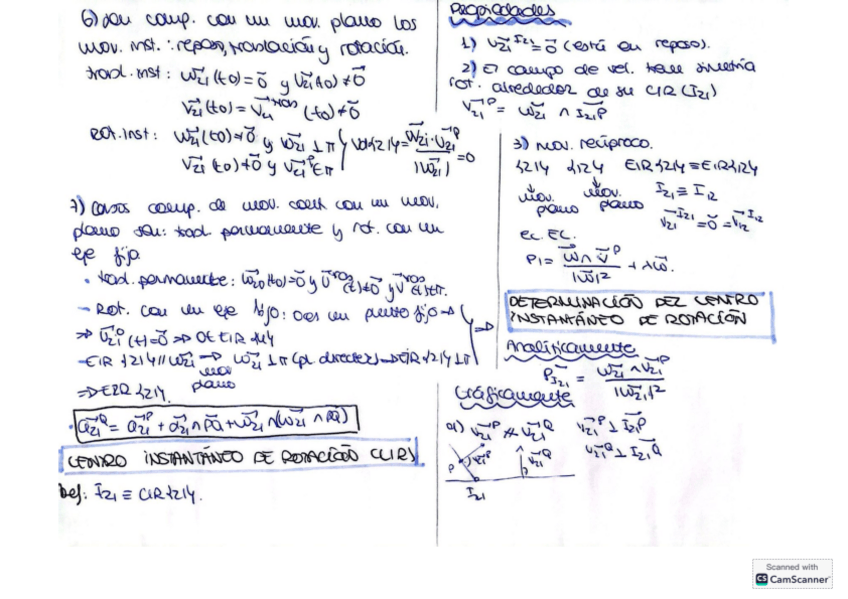 6) Son comp. con un mov. plano los
mov. inst.: reposo, traslación y rotación.
trasl. inst: ω₂₁(t0) = 0 y v₂₁(t0) ≠ 0
v₂₁(t0) = v₂₁ (t0) ≠ 0
Rot. inst: ω₂₁(t0) ≠ 0 y ω₂₁ ⊥ π
v₂₁(t0) ≠ 0 y v₂₁ᴾ ∈ π
vd{21} = ω₂₁ · v₂₁ᴾ / |ω₂₁| = 0
7) Casos comp. de mov. con un mov.
plano son: trasl. permanente y rot. con un
eje fijo.
• trasl. permanente: (t0) = 0 y
- Rot. con un eje fijo: O es un punto fijo ->
=> v₂₁ᴼ(t) = 0 => O ∈ EIR {21}
- EIR {21} // ω₂₁ → ω₂₁ ⊥ π (pl. director) → EIR {21} ⊥ π
mov
plano
=> EIR {21}.
• a₂₁Q = a₂₁P + α₂₁ ∧ PQ + ω₂₁ ∧ (ω₂₁ ∧ PQ)
CENTRO INSTANTÁNEO DE ROTACIÓN (CIR)
Def: I₂₁ ≡ CIR {21}.
Propiedades
1) v₂₁ᴵ²¹ = 0 (está en reposo).
2) El campo de vel. tiene simetría
rot. alrededor de su CIR (I₂₁)
v₂₁ᴾ = ω₂₁ ∧ I₂₁P
3) Mov. recíproco.
{21} {12} EIR {21} = EIR {12}
mov. plano mov. plano I₂₁ ≡ I₁₂
v₂₁ᴵ²¹ = 0 = v₁₂ᴵ¹²
ec. EC.
PI = ω ∧ vᴾ / |ω|² + λω.
DETERMINACIÓN DEL CENTRO
INSTANTÁNEO DE ROTACIÓN
Analíticamente
PI₂₁ = ω₂₁ ∧ v₂₁ᴾ / |ω₂₁|²
Gráficamente
a1) v₂₁ᴾ ∦ v₂₁Q v₂₁ᴾ ⊥ I₂₁P
v₂₁Q ⊥ I₂₁Q
P v₂₁ᴾ v₂₁Q
I₂₁
Scanned with
CS CamScanner